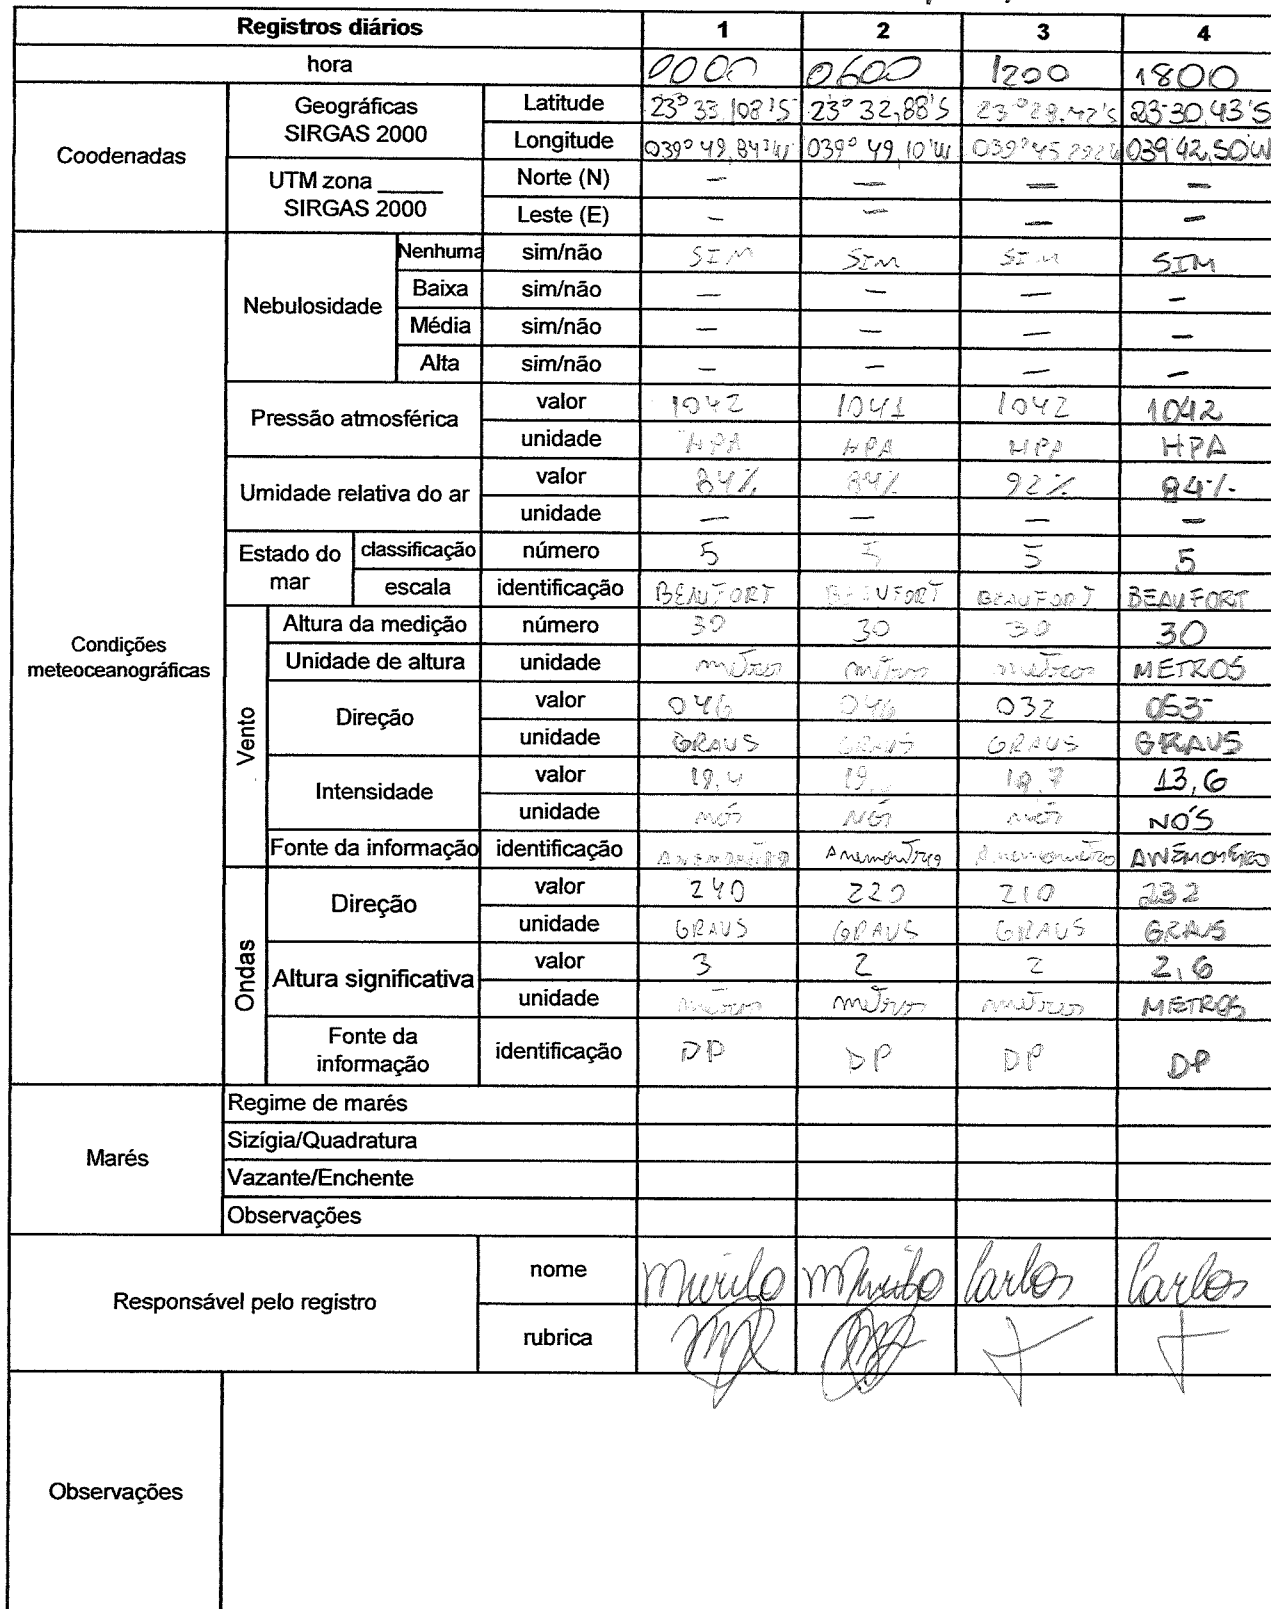 Registros diários 1 2 3 4
hora 0000 0600 1200 1800
Coodenadas
Geográficas SIRGAS 2000
Latitude 23° 33,108'S 23° 32,88'S 23°30,43'S
Longitude 039° 49,84'W 039° 49,10'W 039°45 039 42,50W
UTM zona ______ SIRGAS 2000
Norte (N) — — — —
Leste (E) — — — —
Condições meteoceanográficas
Nebulosidade
Nenhuma sim/não SIM SIM SIM SIM
Baixa sim/não — — — —
Média sim/não — — — —
Alta sim/não — — — —
Pressão atmosférica
valor 1042 1041 1042 1042
unidade HPA HPA HPA HPA
Umidade relativa do ar
valor 84% 84% 92% 84%
unidade — — — —
Estado do mar
classificação número 5 5 5 5
escala identificação BEAUFORT BEAUFORT BEAUFORT BEAUFORT
Vento
Altura da medição número 30 30 30 30
Unidade de altura unidade metros metros metros METROS
Direção
valor 046 046 032 053
unidade GRAUS GRAUS GRAUS GRAUS
Intensidade
valor 19, 13,6
unidade nós NÓS nós NÓS
Fonte da informação identificação ANEMOMETRO Anemometro Anemometro ANEMOMETRO
Ondas
Direção
valor 240 220 210 232
unidade GRAUS GRAUS GRAUS GRAUS
Altura significativa
valor 3 2 2 2,6
unidade metros metros metros METROS
Fonte da informação identificação DP DP DP DP
Marés
Regime de marés
Sizígia/Quadratura
Vazante/Enchente
Observações
Responsável pelo registro
nome Murilo Murilo Carlos Carlos
rubrica
Observações